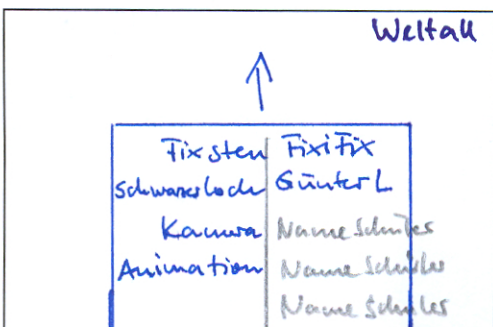 Weltall
Fixstern FixiFix
Schwarzerloch Günter L
Kamera Name Schüler
Animation Name Schüler
Name Schüler